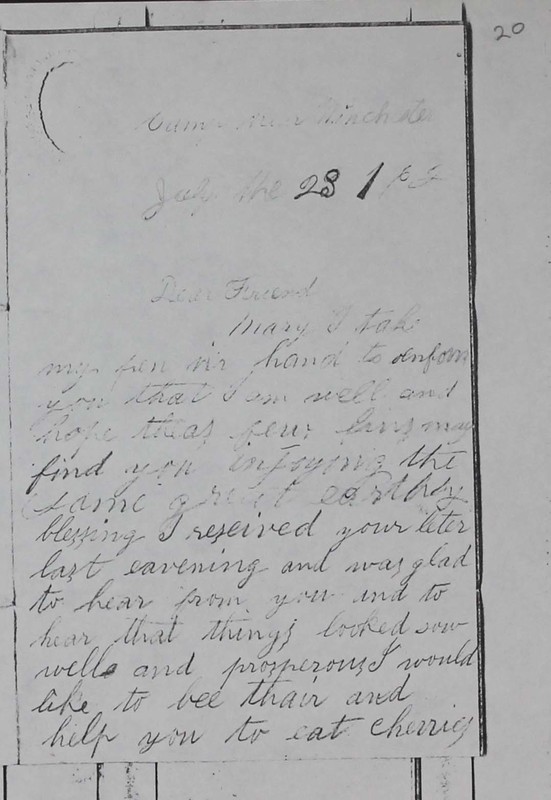 20
Camp near Winchester
July the 28 18
Dear Friend
Mary I take
my pen in hand to enform
you that I am well and
hope theas few lins may
find you injoying the
same great earthly
blessing I reseived your leter
last eavening and was glad
to hear from you and to
hear that things looked sow
well and prosperous I would
like to bee thair and
help you to eat cherries